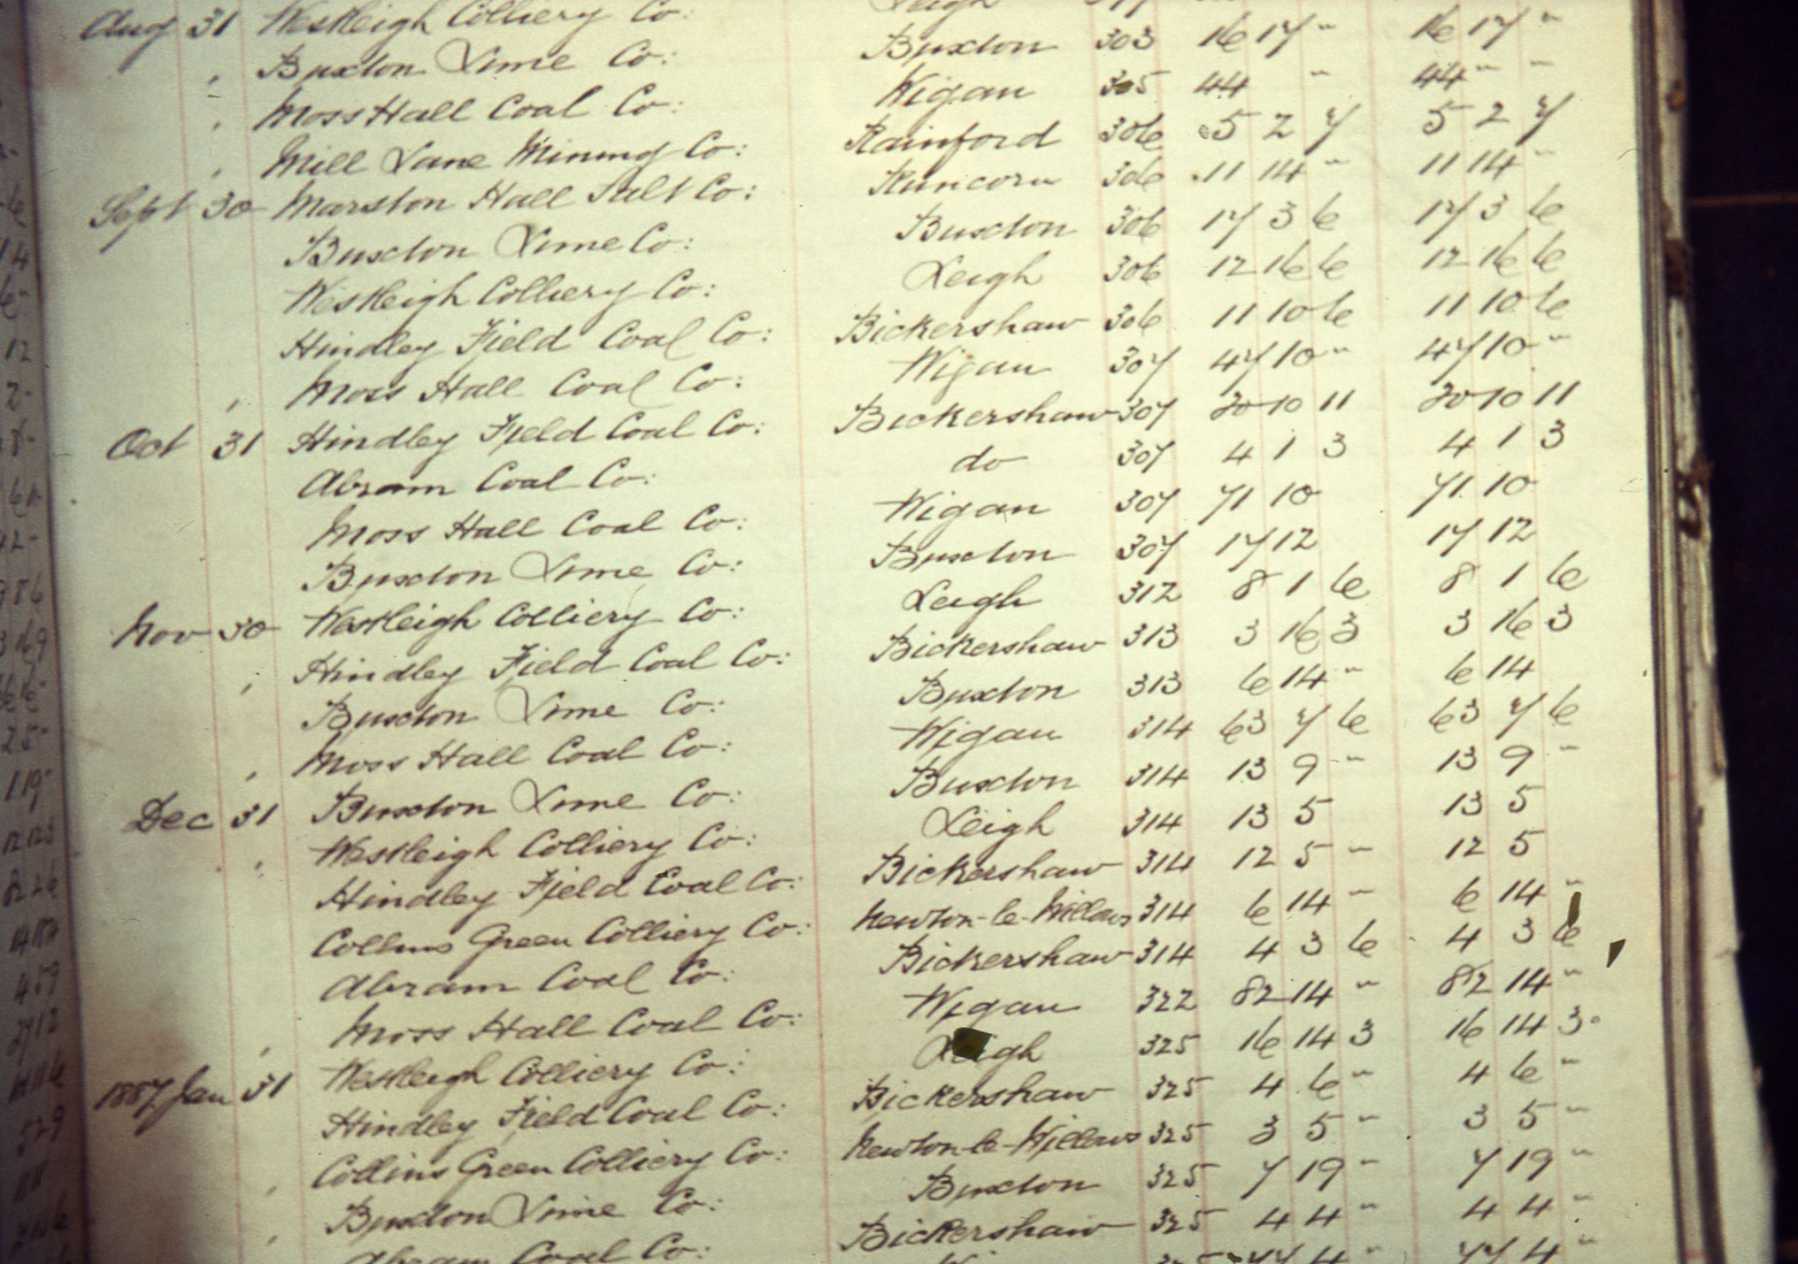 Aug 31 Westleigh Colliery Co: Leigh
" Buxton Lime Co: Buxton 303 16 17 " 16 17 "
" Moss Hall Coal Co: Wigan 305 44 " 44 " "
" Mill Lane Mining Co: Rainford 306 5 2 7 5 2 7
Sept 30 Marston Hall Salt Co: Runcorn 306 11 14 " 11 14 "
Buxton Lime Co: Buxton 306 17 3 6 17 3 6
Westleigh Colliery Co: Leigh 306 12 16 6 12 16 6
Hindley Field Coal Co: Bickershaw 306 11 10 6 11 10 6
" Moss Hall Coal Co: Wigan 307 47 10 " 47 10 "
Oct 31 Hindley Field Coal Co: Bickershaw 307 20 10 11 20 10 11
Abram Coal Co: do 307 4 1 3 4 1 3
Moss Hall Coal Co: Wigan 307 71 10 71 10
Buxton Lime Co: Buxton 307 17 12 17 12
Nov 30 Westleigh Colliery Co: Leigh 312 8 1 6 8 1 6
" Hindley Field Coal Co: Bickershaw 313 3 16 3 3 16 3
Buxton Lime Co: Buxton 313 6 14 " 6 14
" Moss Hall Coal Co: Wigan 314 63 7 6 63 7 6
Dec 31 Buxton Lime Co: Buxton 314 13 9 " 13 9 "
" Westleigh Colliery Co: Leigh 314 13 5 13 5
Hindley Field Coal Co: Bickershaw 314 12 5 " 12 5
Collins Green Colliery Co: Newton-le-Willows 314 6 14 " 6 14 "
Abram Coal Co: Bickershaw 314 4 3 6 4 3 6
" Moss Hall Coal Co: Wigan 322 82 14 " 82 14 "
1887 Jan 31 Westleigh Colliery Co: Leigh 325 16 14 3 16 14 3
Hindley Field Coal Co: Bickershaw 325 4 6 " 4 6 "
" Collins Green Colliery Co: Newton-le-Willows 325 3 5 " 3 5 "
" Buxton Lime Co: Buxton 325 7 19 " 7 19 "
Abram Coal Co: Bickershaw 325 4 4 " 4 4 "